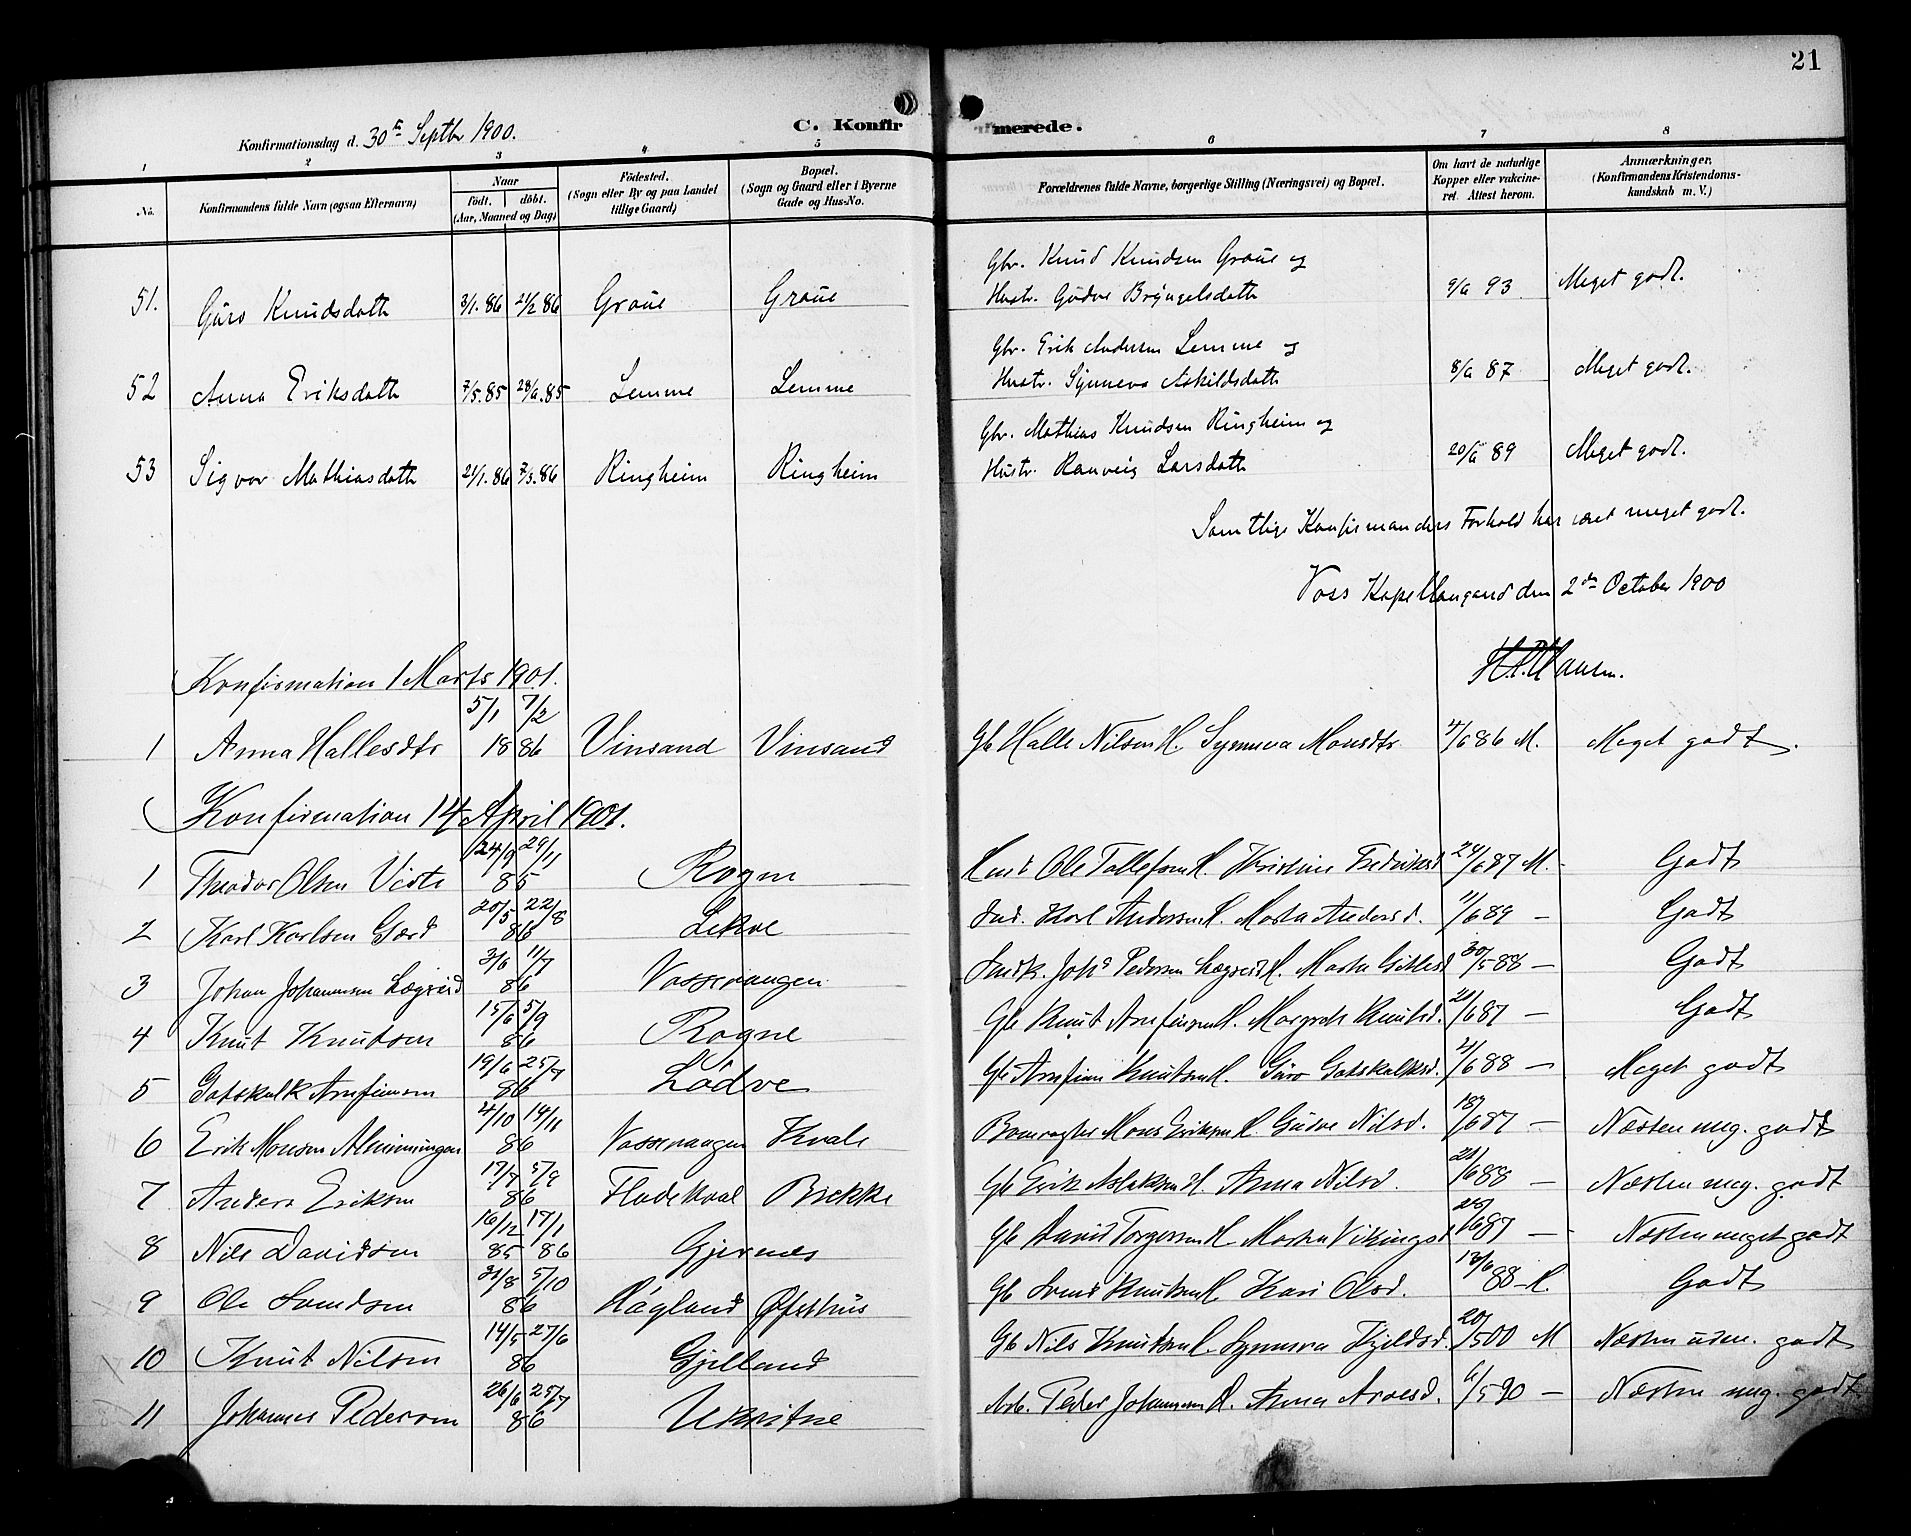 21
Konfirmationsdag d. 30te Septbr 1900.
C. Konfirmerede.
1 2 3 4 5 6 7 8
No. Konfirmandens fulde Navn (ogsaa Efternavn) Naar födt. döbt. (Aar, Maaned og Dag) Födested. (Sogn eller By og paa Landet tillige Gaard) Bopæl. (Sogn og Gaard eller i Byerne Gade og Hus-No. Forældrenes fulde Navne, borgerlige Stilling (Næringsvei) og Bopæl. Om havt de naturlige Kopper eller vakcineret. Attest herom. Anmærkninger. (Konfirmandens Kristendomskundskab m. V.)
51. Gûro Knudsdatte 3/1.86 21/2 86 Graue Graue Gbr. Knud Knudsen Graue og Hustr. Gudve Bryngelsdatte 9/6 93 Meget godt.
52 Anna Eriksdatte 7/5.85 28/6.85 Lemme Lemme Gbr. Erik Andersen Lemme og Hustr. Synneva Askildsdatte 8/6 87 Meget godt.
53 Sigvor Mathiasdatte 21/1.86 7/3.86 Ringheim Ringheim Gbr. Mathias Knudsen Ringheim og Hustr. Ranveig Larsdatte 20/6 89 Meget godt.
Samtlige Konfirmanders Forhold har været meget godt.
Voss Kapellangaard den 2den October 1900
Konfirmation 1 Marts 1901.
1 Anna Hallesdtr 5/1 7/2 1886 Vinsand Vinsand Gb Halle Nilsen H. Synneva Monsdtr. 4/6 86 M. Meget godt.
Konfirmation 14 April 1901.
1 Theodor Olsen Viste 24/9 29/11 85 Rogne Ole Tollefsen H. Kristine 24/6 87 M. Godt
2 Karl Karlsen Gjerd 20/5 22/8 86 Lekve Ind. Karl Andersen H. Marta Andersd. 11/6 89 — Godt
3 Johan Johannesen Lægreid 3/6 11/7 86 Vossevangen Johs Pedersen Lægreid H. Marta 30/5 88 — Godt
4 Knut Knutsen 15/6 5/9 86 Rogne Gb Knut Arnfinsen H. Margrete Knutsd. 21/6 87 — Godt
5 Gotskalk Arnfinsen 19/6 25/7 86 Lödve Gb Arnfinn Knutsen H. Gûro Gotskalksd. 21/6 88 — Meget godt
6 Erik Monsen Almenningen 4/10 14/11 86 Vossevangen Kvale Mons Eriksen H. Gudve Nilsd. 18/6 87 — Næsten meg. godt
7 Anders Eriksen 17/7 5/9 86 Flatekval Brekke Gb Erik Aslaksen H Anna Nilsd. 21/6 88 — Næsten meg. godt
8 Nils Davidsen 16/12 17/1 85 86 Gjernes Gb David Torgersen H Marta Vikingsd. 25/6 87 — Næsten meget godt
9 Ole Svendsen 31/8 5/10 86 Røgland Øfsthus Gb Svend Knutsen H Kari Olsd. 13/6 88 M. Godt
10 Knut Nilsen 14/5 27/6 86 Gjelland Gb Nils Knutsen H. Synneva Kjeldsd. 20/5 00 M Næsten godt
11 Johannes Pedersen 26/6 25/7 86 Ukvitne Arb. Peder Johannesen H. Anna Arnesd. 6/5 90 — Næsten meg. godt